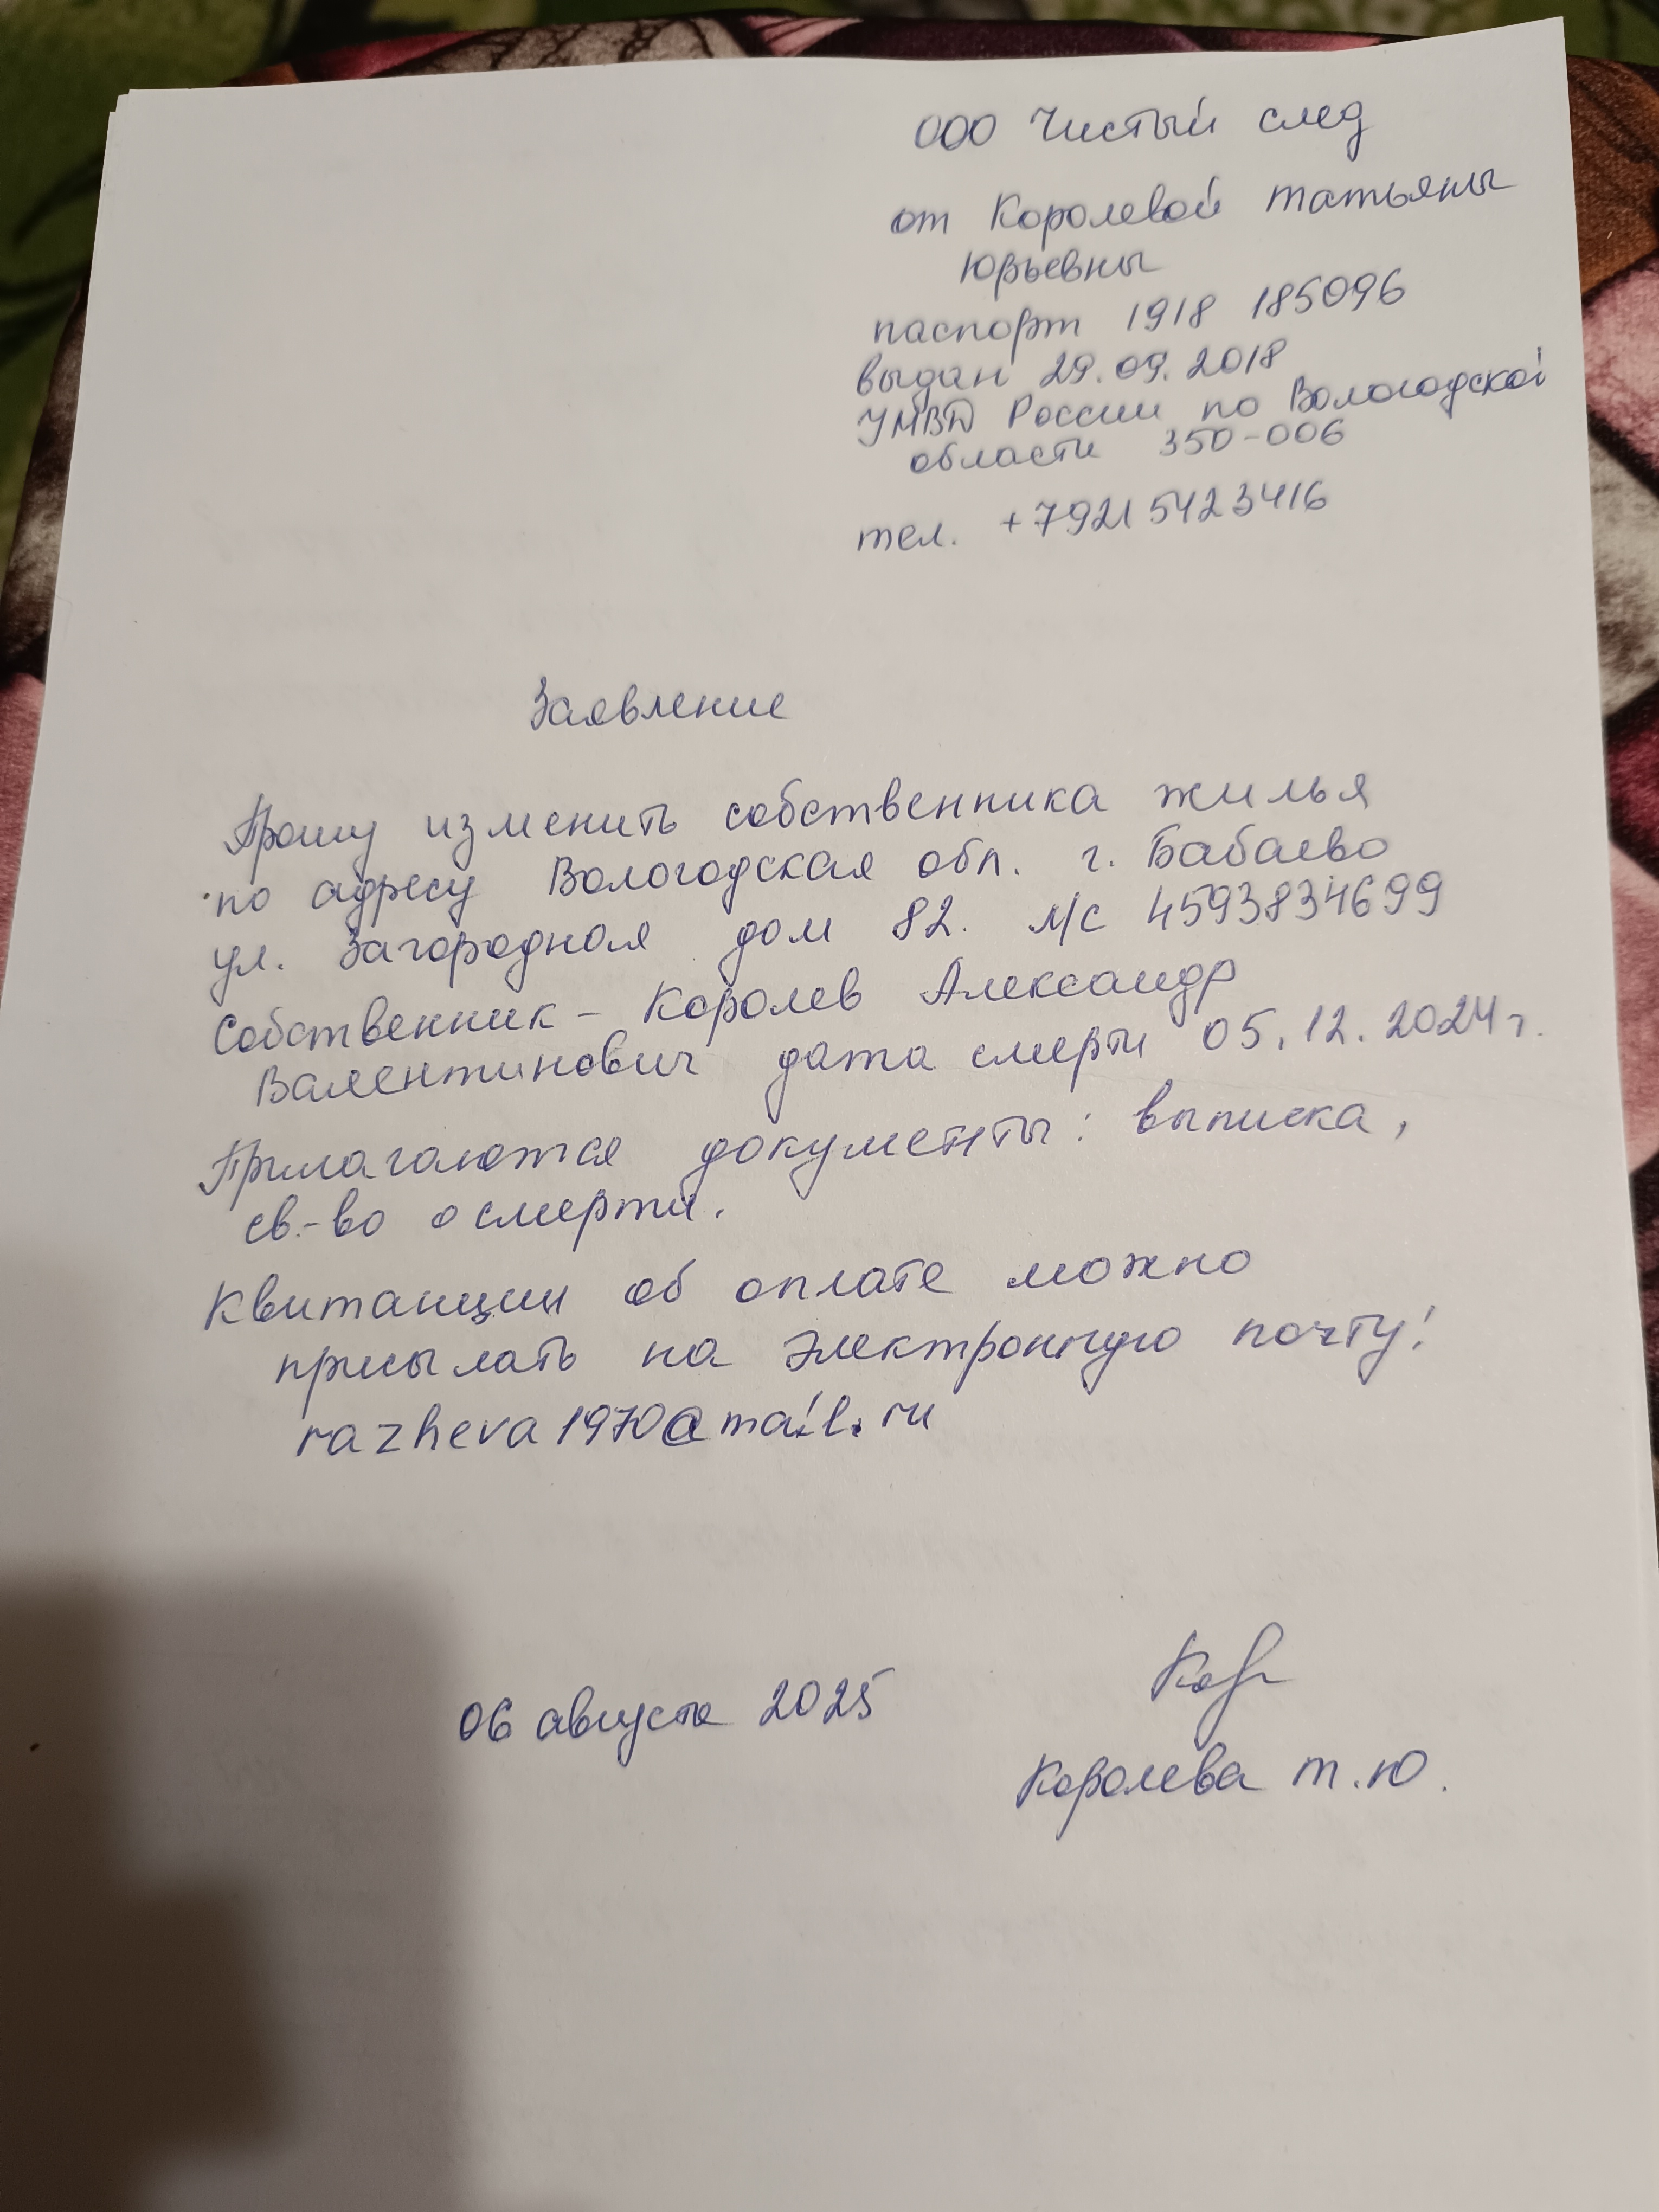 ООО Чистый след
от Королевой Татьяны
Юрьевны
паспорт 1918 185096
выдан 29.09.2018
УМВД России по Вологодской
области 350-006
тел. +79215423416
Заявление
Прошу изменить собственника жилья
по адресу Вологодская обл. г. Бабаево
ул. Загородная дом 82. л/с 4593834699
Собственник - Королев Александр
Валентинович дата смерти 05.12.2024 г.
Прилагаются документы: выписка,
св.-во о смерти.
Квитанции об оплате можно
присылать на электронную почту!
razheva1970@mail.ru
Кор
06 августа 2025
Королева Т.Ю.